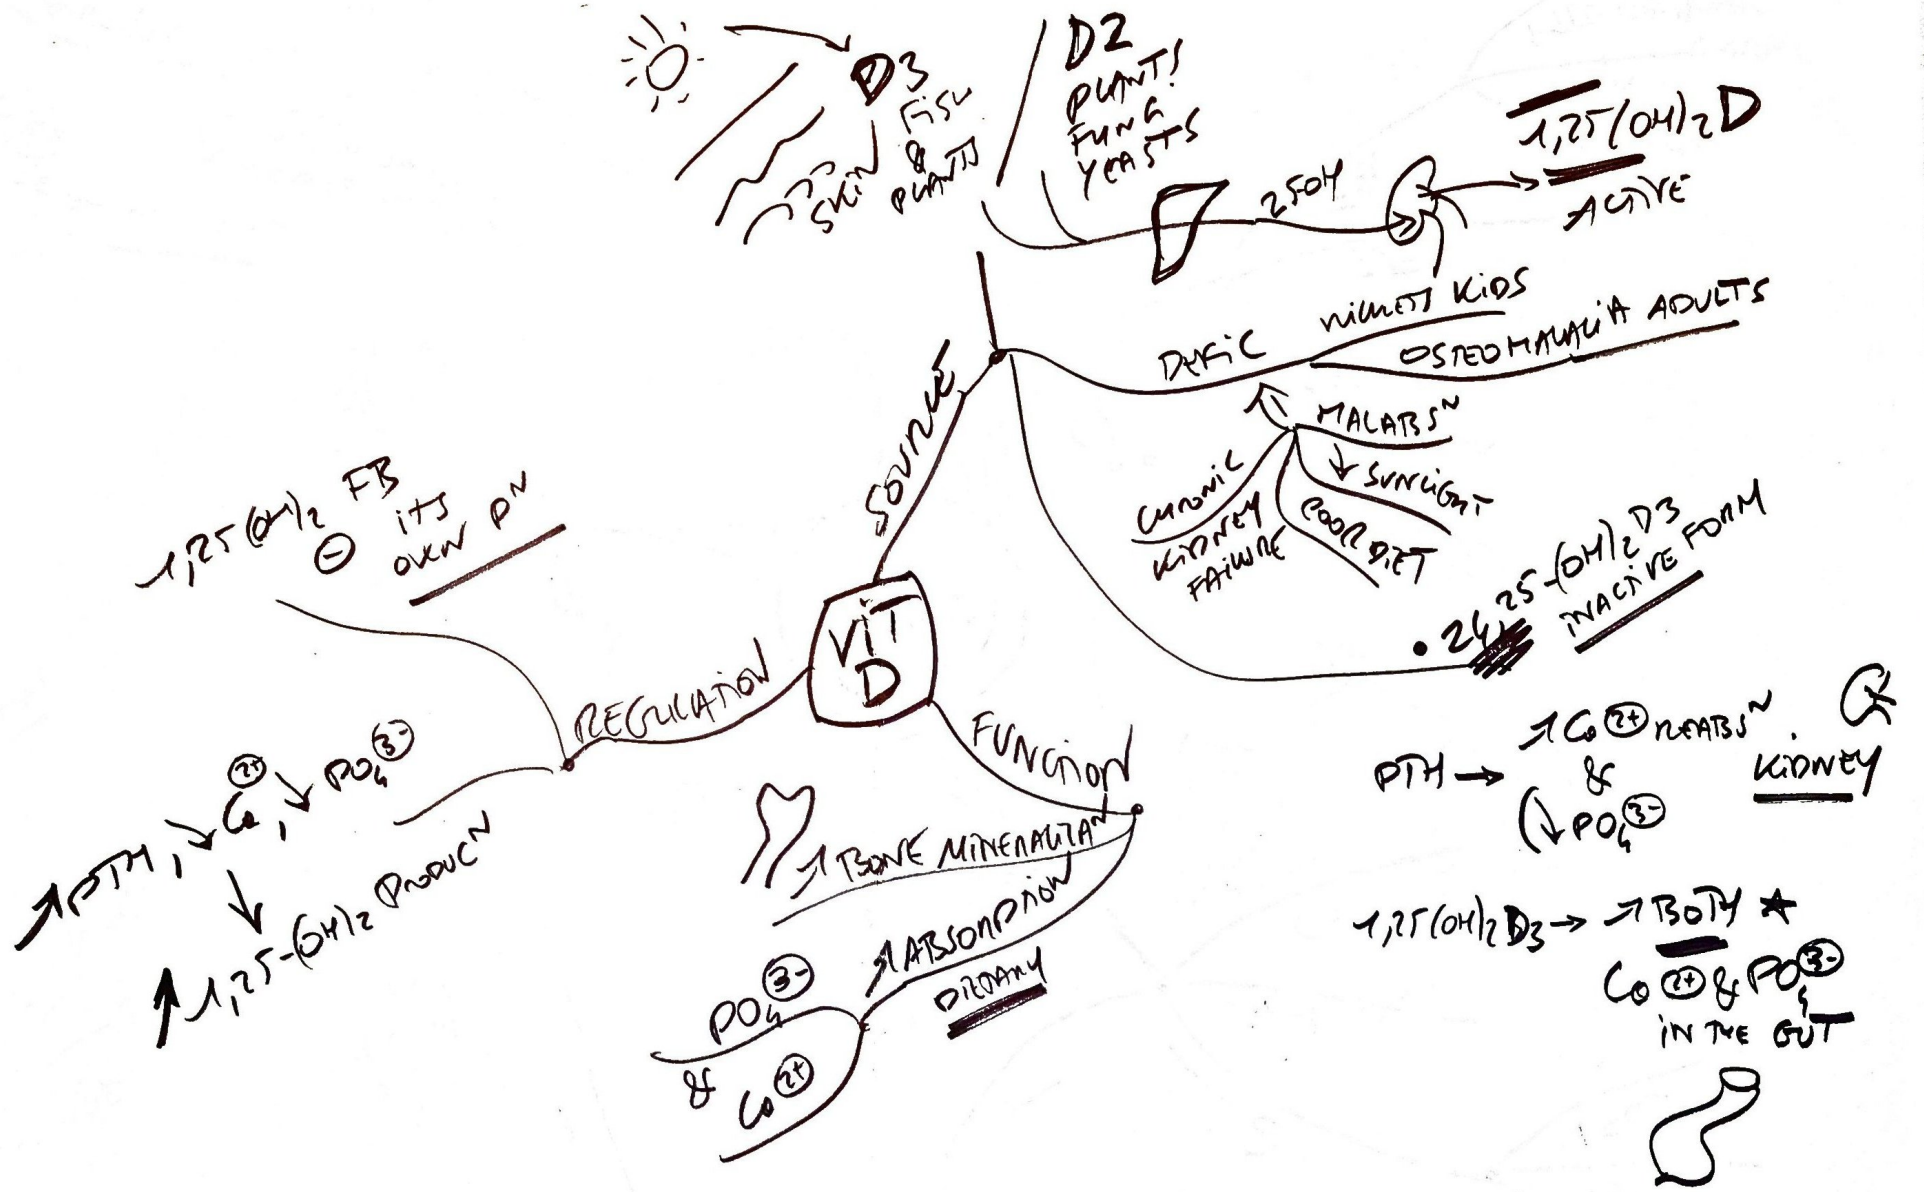 D3
FISH
&
PLANTS
SKIN
D2
PLANTS
FUNG
YEASTS
25OH
1,25(OH)2D
ACTIVE
SOURCE
DEFIC
RICKETS KIDS
OSTEOMALACIA ADULTS
MALABSᴺ
↓ SUNLIGHT
POOR DIET
CHRONIC
KIDNEY
FAILURE
• 24,25-(OH)2D3
INACTIVE FORM
VIT
D
REGULATION
1,25(OH)2 FB
⊖ ITS
OWN Pᴺ
↑PTH, ↓Ca2+, ↓PO4 3-
↑1,25-(OH)2 PRODUCᴺ
FUNCTION
↑BONE MINERALIZAᴺ
↑ABSORPTION
DIETARY
PO4 3-
&
Ca2+
PTH → ↑Ca2+ REABSᴺ
&
(↓PO4 3-
KIDNEY
1,25(OH)2D3 → ↑BOTH ★
Ca2+ & PO4 3-
IN THE GUT